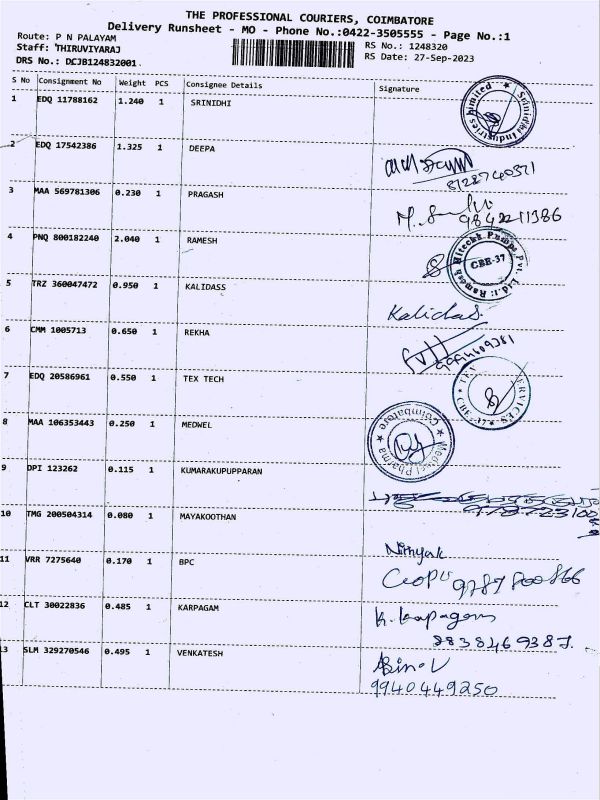 THE PROFESSIONAL COURIERS, COIMBATORE
Delivery Runsheet - MO - Phone No.:0422-3505555 - Page No.:1
Route: P N PALAYAM
RS No.: 1248320
Staff: THIRUVIYARAJ
RS Date: 27-Sep-2023
DRS No.: DCJB124832001
S No Consignment No Weight PCS Consignee Details Signature
1 EDQ 11788162 1.240 1 SRINIDHI
Srinidhi Industries Limited
2 EDQ 17542386 1.325 1 DEEPA
8728740371
3 MAA 569781306 0.230 1 PRAGASH
9842211386
4 PNQ 800182240 2.040 1 RAMESH
Ramesh Hitechh Pumps Pvt. Ltd.
CBE-37
5 TRZ 360047472 0.950 1 KALIDASS
Kalidas.
6 CMM 1005713 0.650 1 REKHA
7 EDQ 20586961 0.550 1 TEX TECH
SERVICES
8 MAA 106353443 0.250 1 MEDWEL
Pharma Coimbatore
9 DPI 123262 0.115 1 KUMARAKUPUPPARAN
10 TMG 200504314 0.080 1 MAYAKOOTHAN
11 VRR 7275640 0.170 1 BPC
9787800866
12 CLT 30022836 0.485 1 KARPAGAM
K. Karpagam
13 SLM 329270546 0.495 1 VENKATESH
9940449250